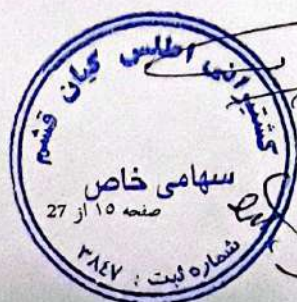 کشتیرانی اطلس کیان قشم
سهامی خاص
صفحه ۱۵ از 27
شماره ثبت : ۳۸۴۷